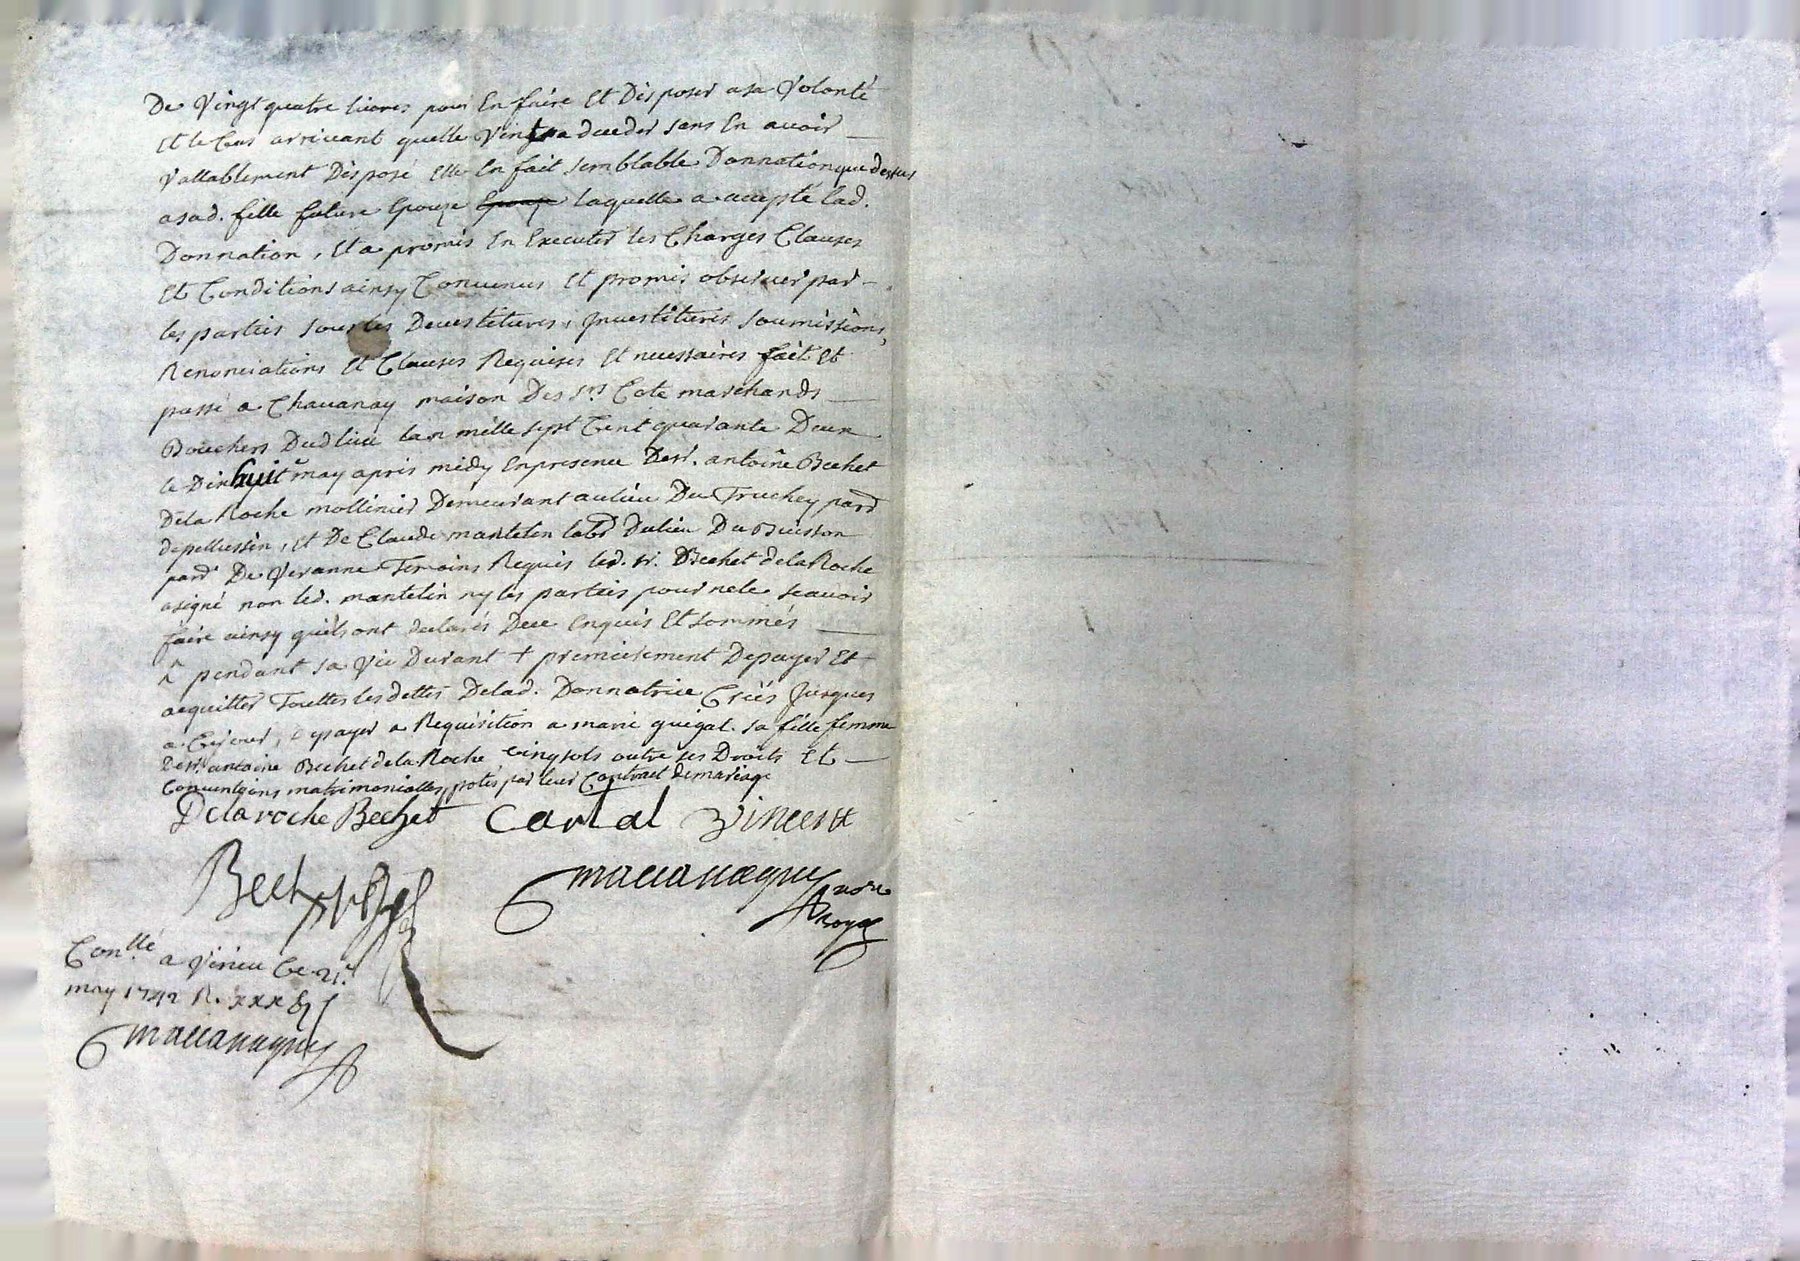 De Vingt quatre livres pour En faire Et Disposer a sa Volonté
Et le Cas arrivant quelle Vint a deceder sans En avoir
Vallablement Disposé Elle En fait semblable Donnation que dessus
a sad. fille future Epouze Epouze laquelle a accepté lad.
Donnation, Et a promis En Executer les Charges Clauses
Et Conditions ainsy Convenus Et promis observer par
les parties sous les Devestitures, Investitures soumissions,
Renonciations Et Clauses Requises Et necessaires fait Et
passé a Chavanay maison Des srs Cote marchands
Bouchers Dud lieu lan mille sept Cent quarante Deux
le Dix huit may apres midy En presence De sr. antoine Bechet
De la Roche mollinier Demeurant au lieu Du Truchey parr
de pellussin, Et De Claude mantelin labr Du lieu Du Buisson
parr De Veranne Temoins Requis led. sr. Bechet de la Roche
a signé non led. mantelin ny les parties pour ne le scavoir
faire ainsy quils ont declarés De ce Enquis Et sommés
^ pendant sa Vie Durant + premierement De payer Et
acquitter Touttes les dettes De lad. Donnatrice Crées Jusques
a Ce jour, payer a Requisition a marie guigal sa fille femme
De sr. antoine Bechet de la Roche Cinq sols outre ses Droits Et
Conventions matrimonialles portés par leur Contract de mariage
Delaroche Bechet Carlal Vincent
Bechet
maccanaguy nore
Royal
Conllé a Virieu Ce 21e
may 1742 R. xxx
maccanaguy